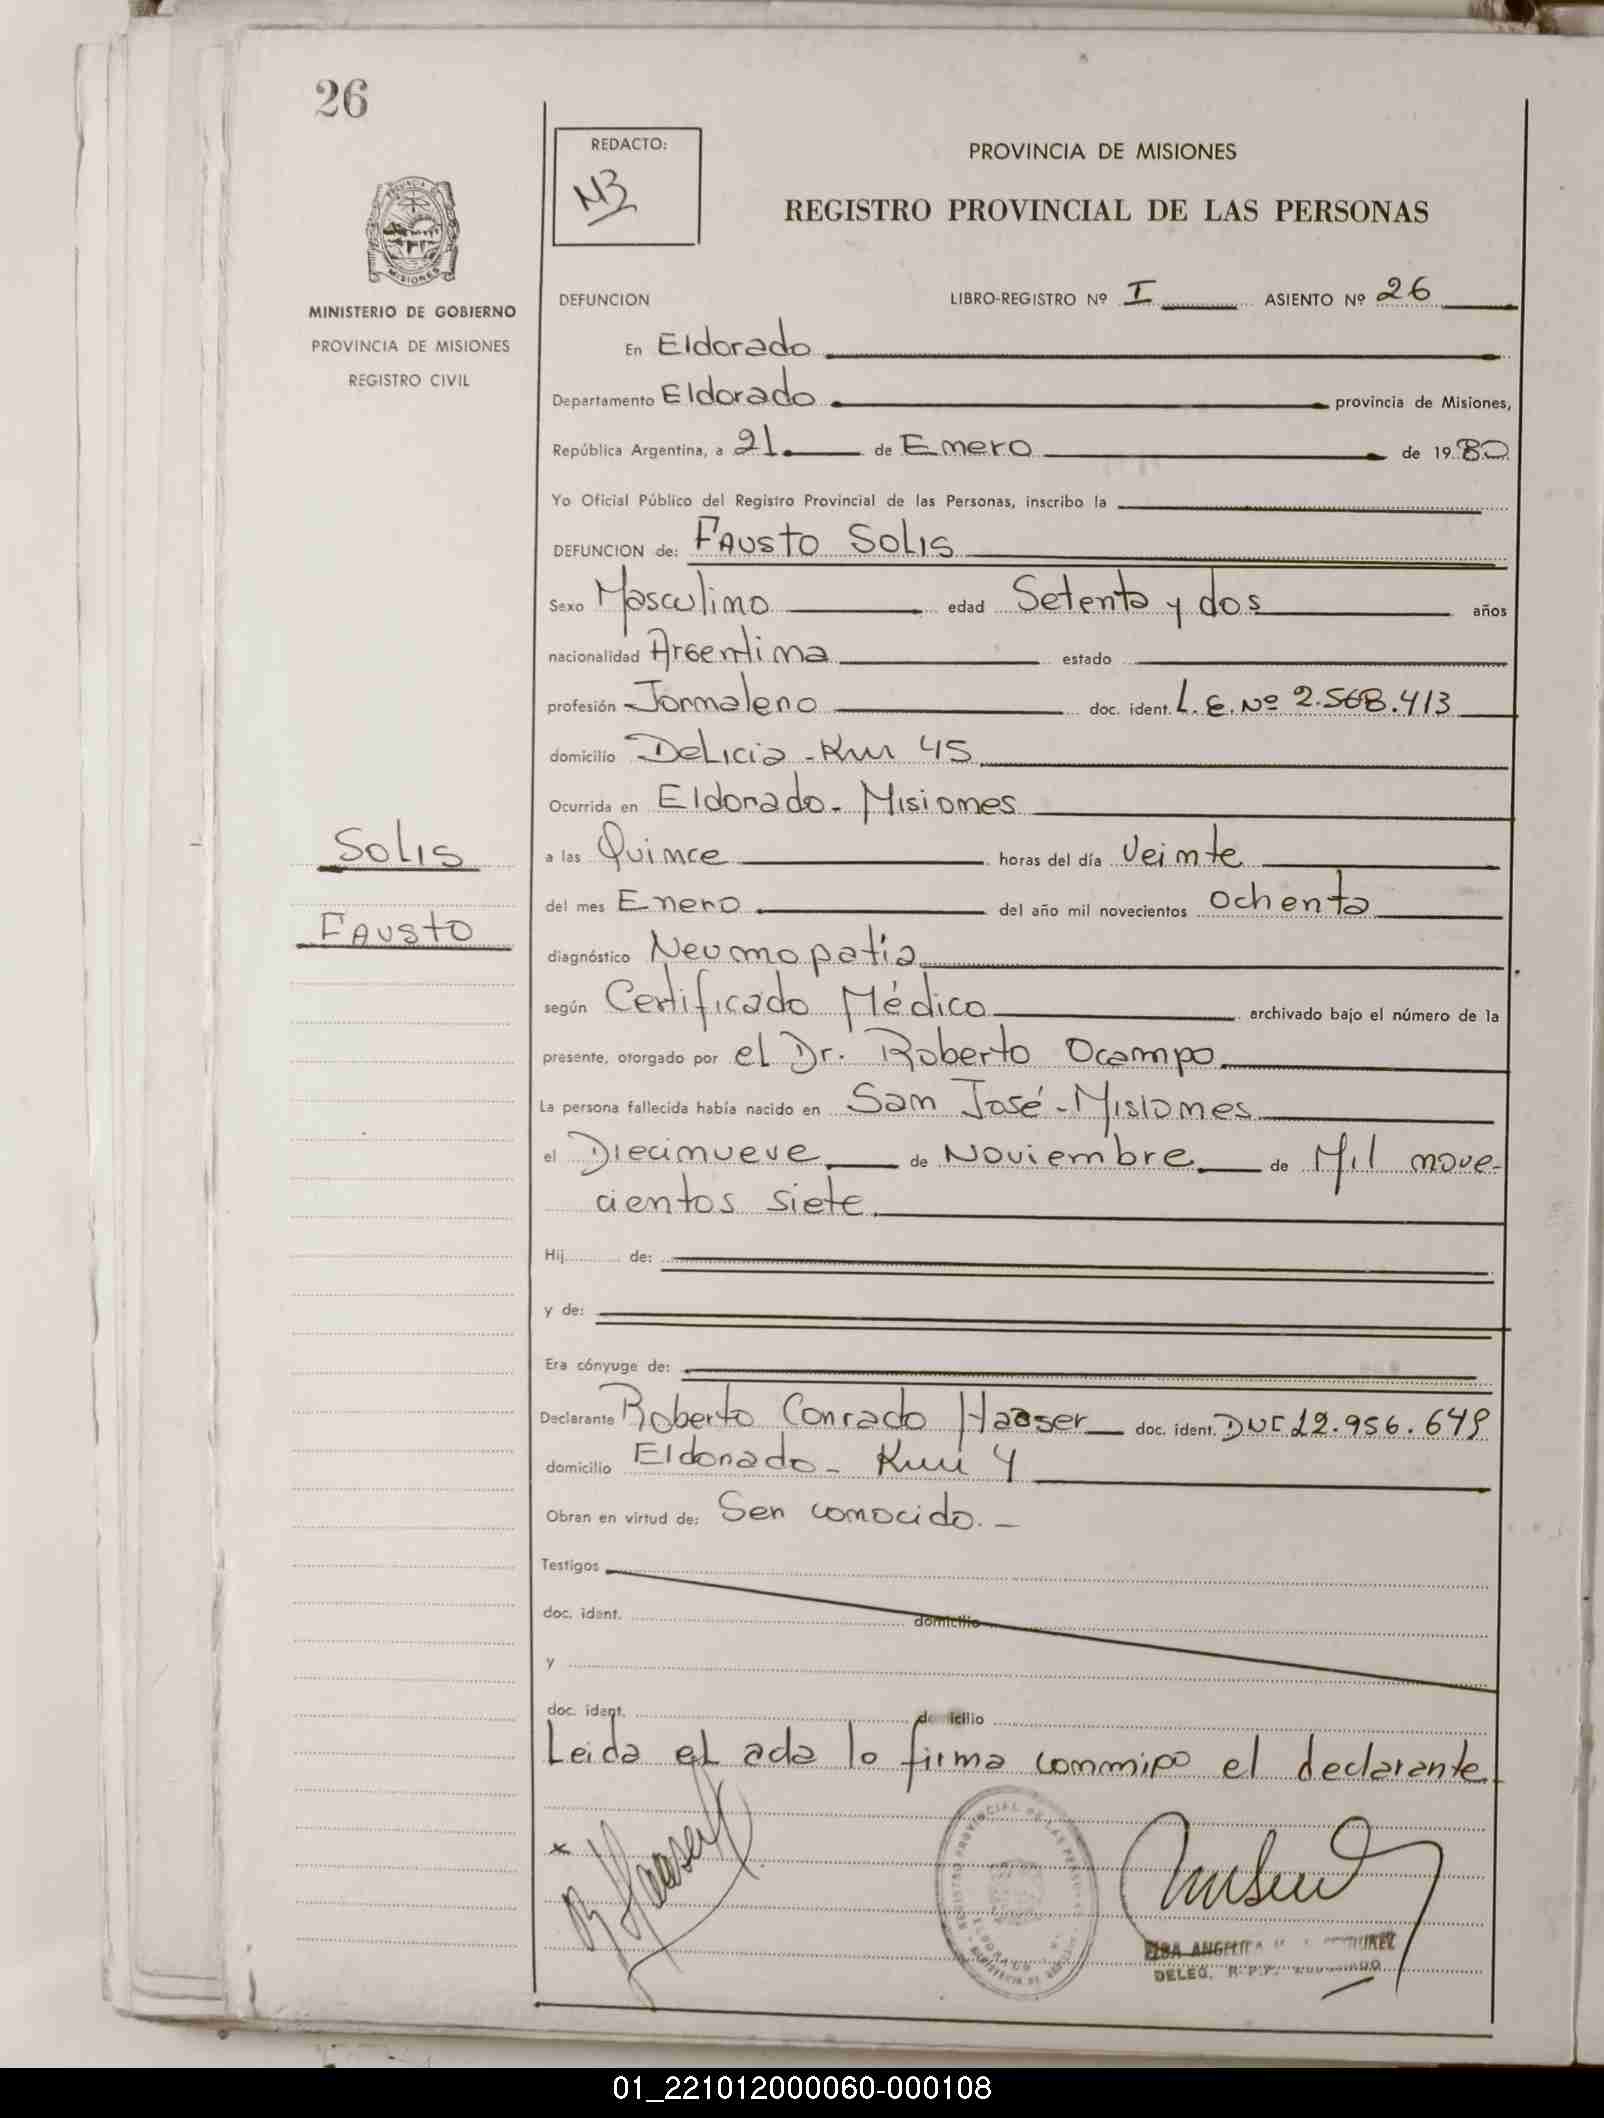 26
REDACTO:
PROVINCIA DE MISIONES
REGISTRO PROVINCIAL DE LAS PERSONAS
MISIONES
MINISTERIO DE GOBIERNO
PROVINCIA DE MISIONES
REGISTRO CIVIL
DEFUNCION LIBRO-REGISTRO Nº I ASIENTO Nº 26
En Eldorado
Departamento Eldorado provincia de Misiones,
República Argentina, a 21 de Enero de 1980
Yo Oficial Público del Registro Provincial de las Personas, inscribo la
DEFUNCION de: Fausto Solis
Sexo Masculino edad Setenta y dos años
nacionalidad Argentina estado
profesión Jornalero doc. ident. L.E. Nº 2.568.413
domicilio Delicia - Km 45
Ocurrida en Eldorado - Misiones
Solis
a las Quince horas del día Veinte
del mes Enero del año mil novecientos ochenta
Fausto
diagnóstico Neumopatia
según Certificado Médico archivado bajo el número de la
presente, otorgado por el Dr. Roberto Ocampo
La persona fallecida había nacido en San José - Misiones
el Diecinueve de Noviembre de Mil nove-
cientos siete
Hij de:
y de:
Era cónyuge de:
Declarante Roberto Conrado Haaser doc. ident. DNI 12.956.649
domicilio Eldorado - Km 4
Obran en virtud de: Ser conocido. -
Testigos
doc. ident. domicilio
y
doc. ident. domicilio
Leida el acta lo firma conmigo el declarante
REGISTRO PROVINCIAL DE LAS PERSONAS
ELBA ANGELICA
DELEG. R.P.P. ELDORADO
01_221012000060-000108